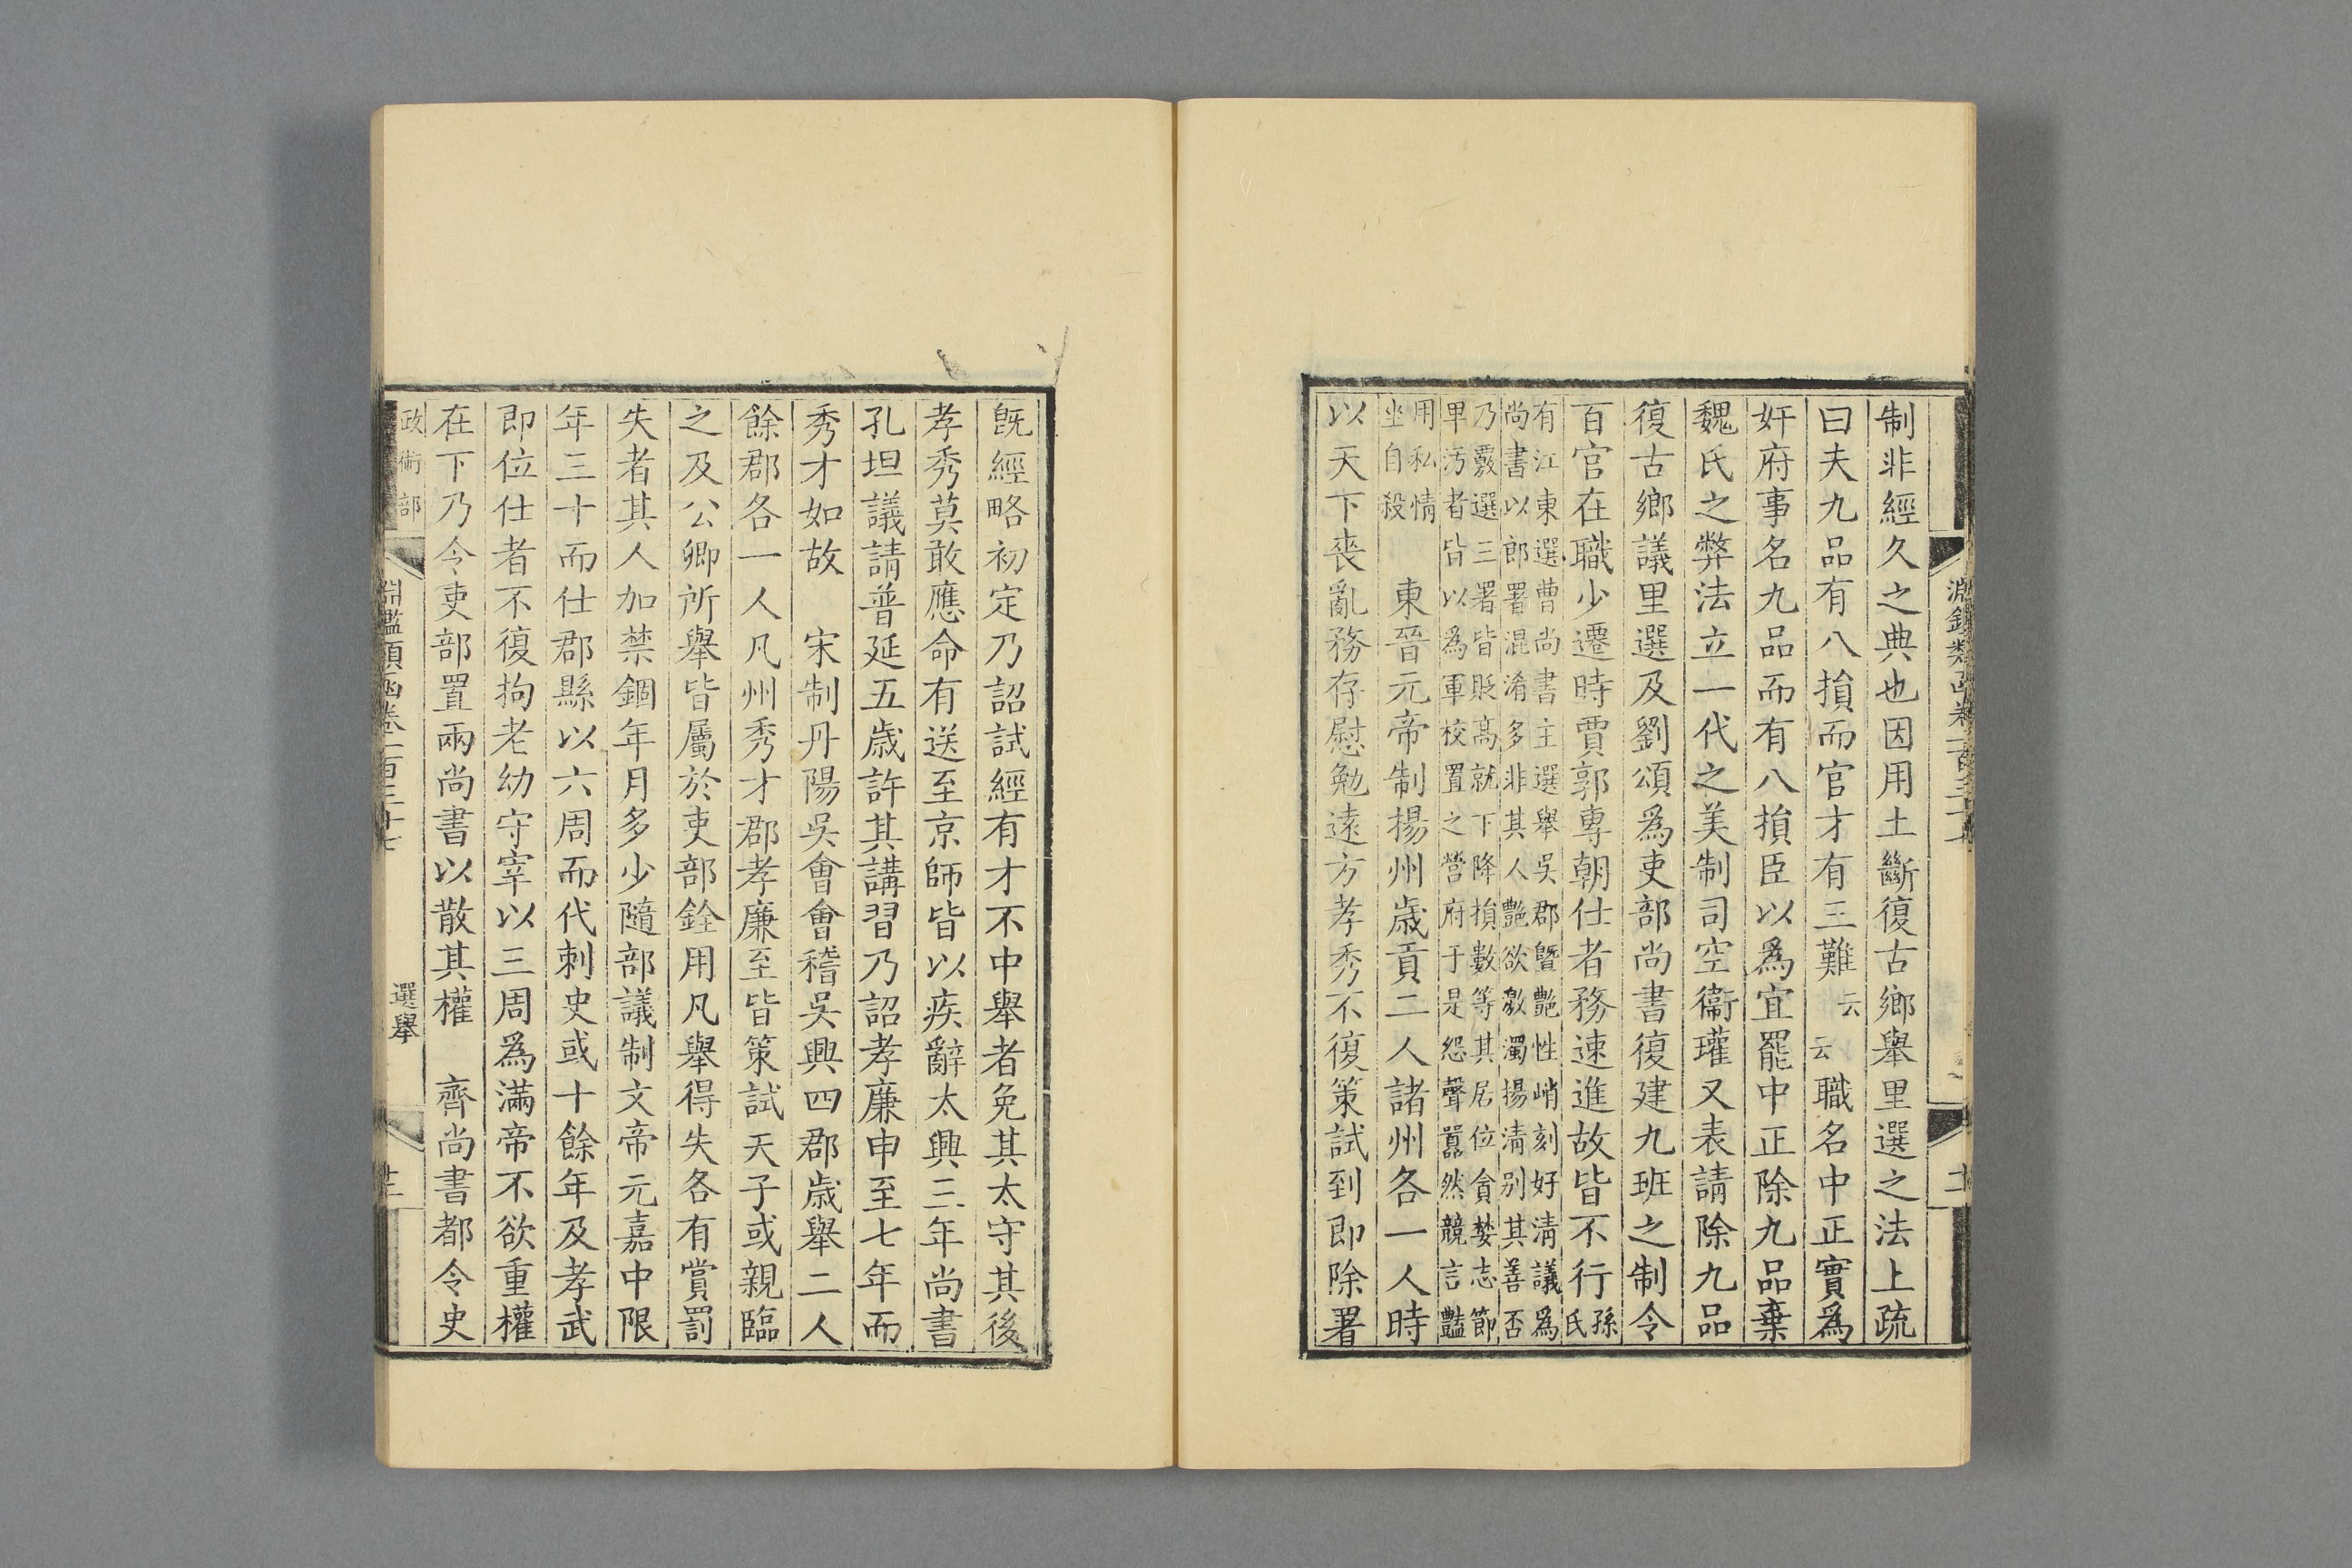 制非經久之典也因用土斷復古鄉舉里選之法上疏
曰夫九品有八損而官才有三難云云職名中正實爲
奸府事名九品而有八損臣以爲宜罷中正除九品棄
魏氏之弊法立一代之美制司空衞瓘又表請除九品
復古鄉議里選及劉頌爲吏部尚書復建九班之制令
百官在職少遷時賈郭專朝仕者務速進故皆不行孫氏
有江東選曹尚書主選舉吳郡曁艷性峭刻好淸議爲
尚書以郎署混淆多非其人艷欲激濁揚淸別其善否
乃覈選三署皆貶高就下降損數等其居位貪婪志節
卑汚者皆以爲軍校置之營府于是怨聲囂然競言豔
用私情
坐自殺
東晉元帝制揚州歲貢二人諸州各一人時
以天下喪亂務存慰勉遠方孝秀不復策試到即除署
既經略初定乃詔試經有才不中舉者免其太守其後
孝秀莫敢應命有送至京師皆以疾辭太興三年尚書
孔坦議請普延五歲許其講習乃詔孝廉申至七年而
秀才如故　宋制丹陽吳會會稽吳興四郡歲舉二人
餘郡各一人凡州秀才郡孝廉至皆策試天子或親臨
之及公卿所舉皆屬於吏部銓用凡舉得失各有賞罰
失者其人加禁錮年月多少隨部議制文帝元嘉中限
年三十而仕郡縣以六周而代刺史或十餘年及孝武
即位仕者不復拘老幼守宰以三周爲滿帝不欲重權
在下乃令吏部置兩尚書以散其權　齊尚書都令史
政術部
淵鑑類函卷一百三十七
選舉